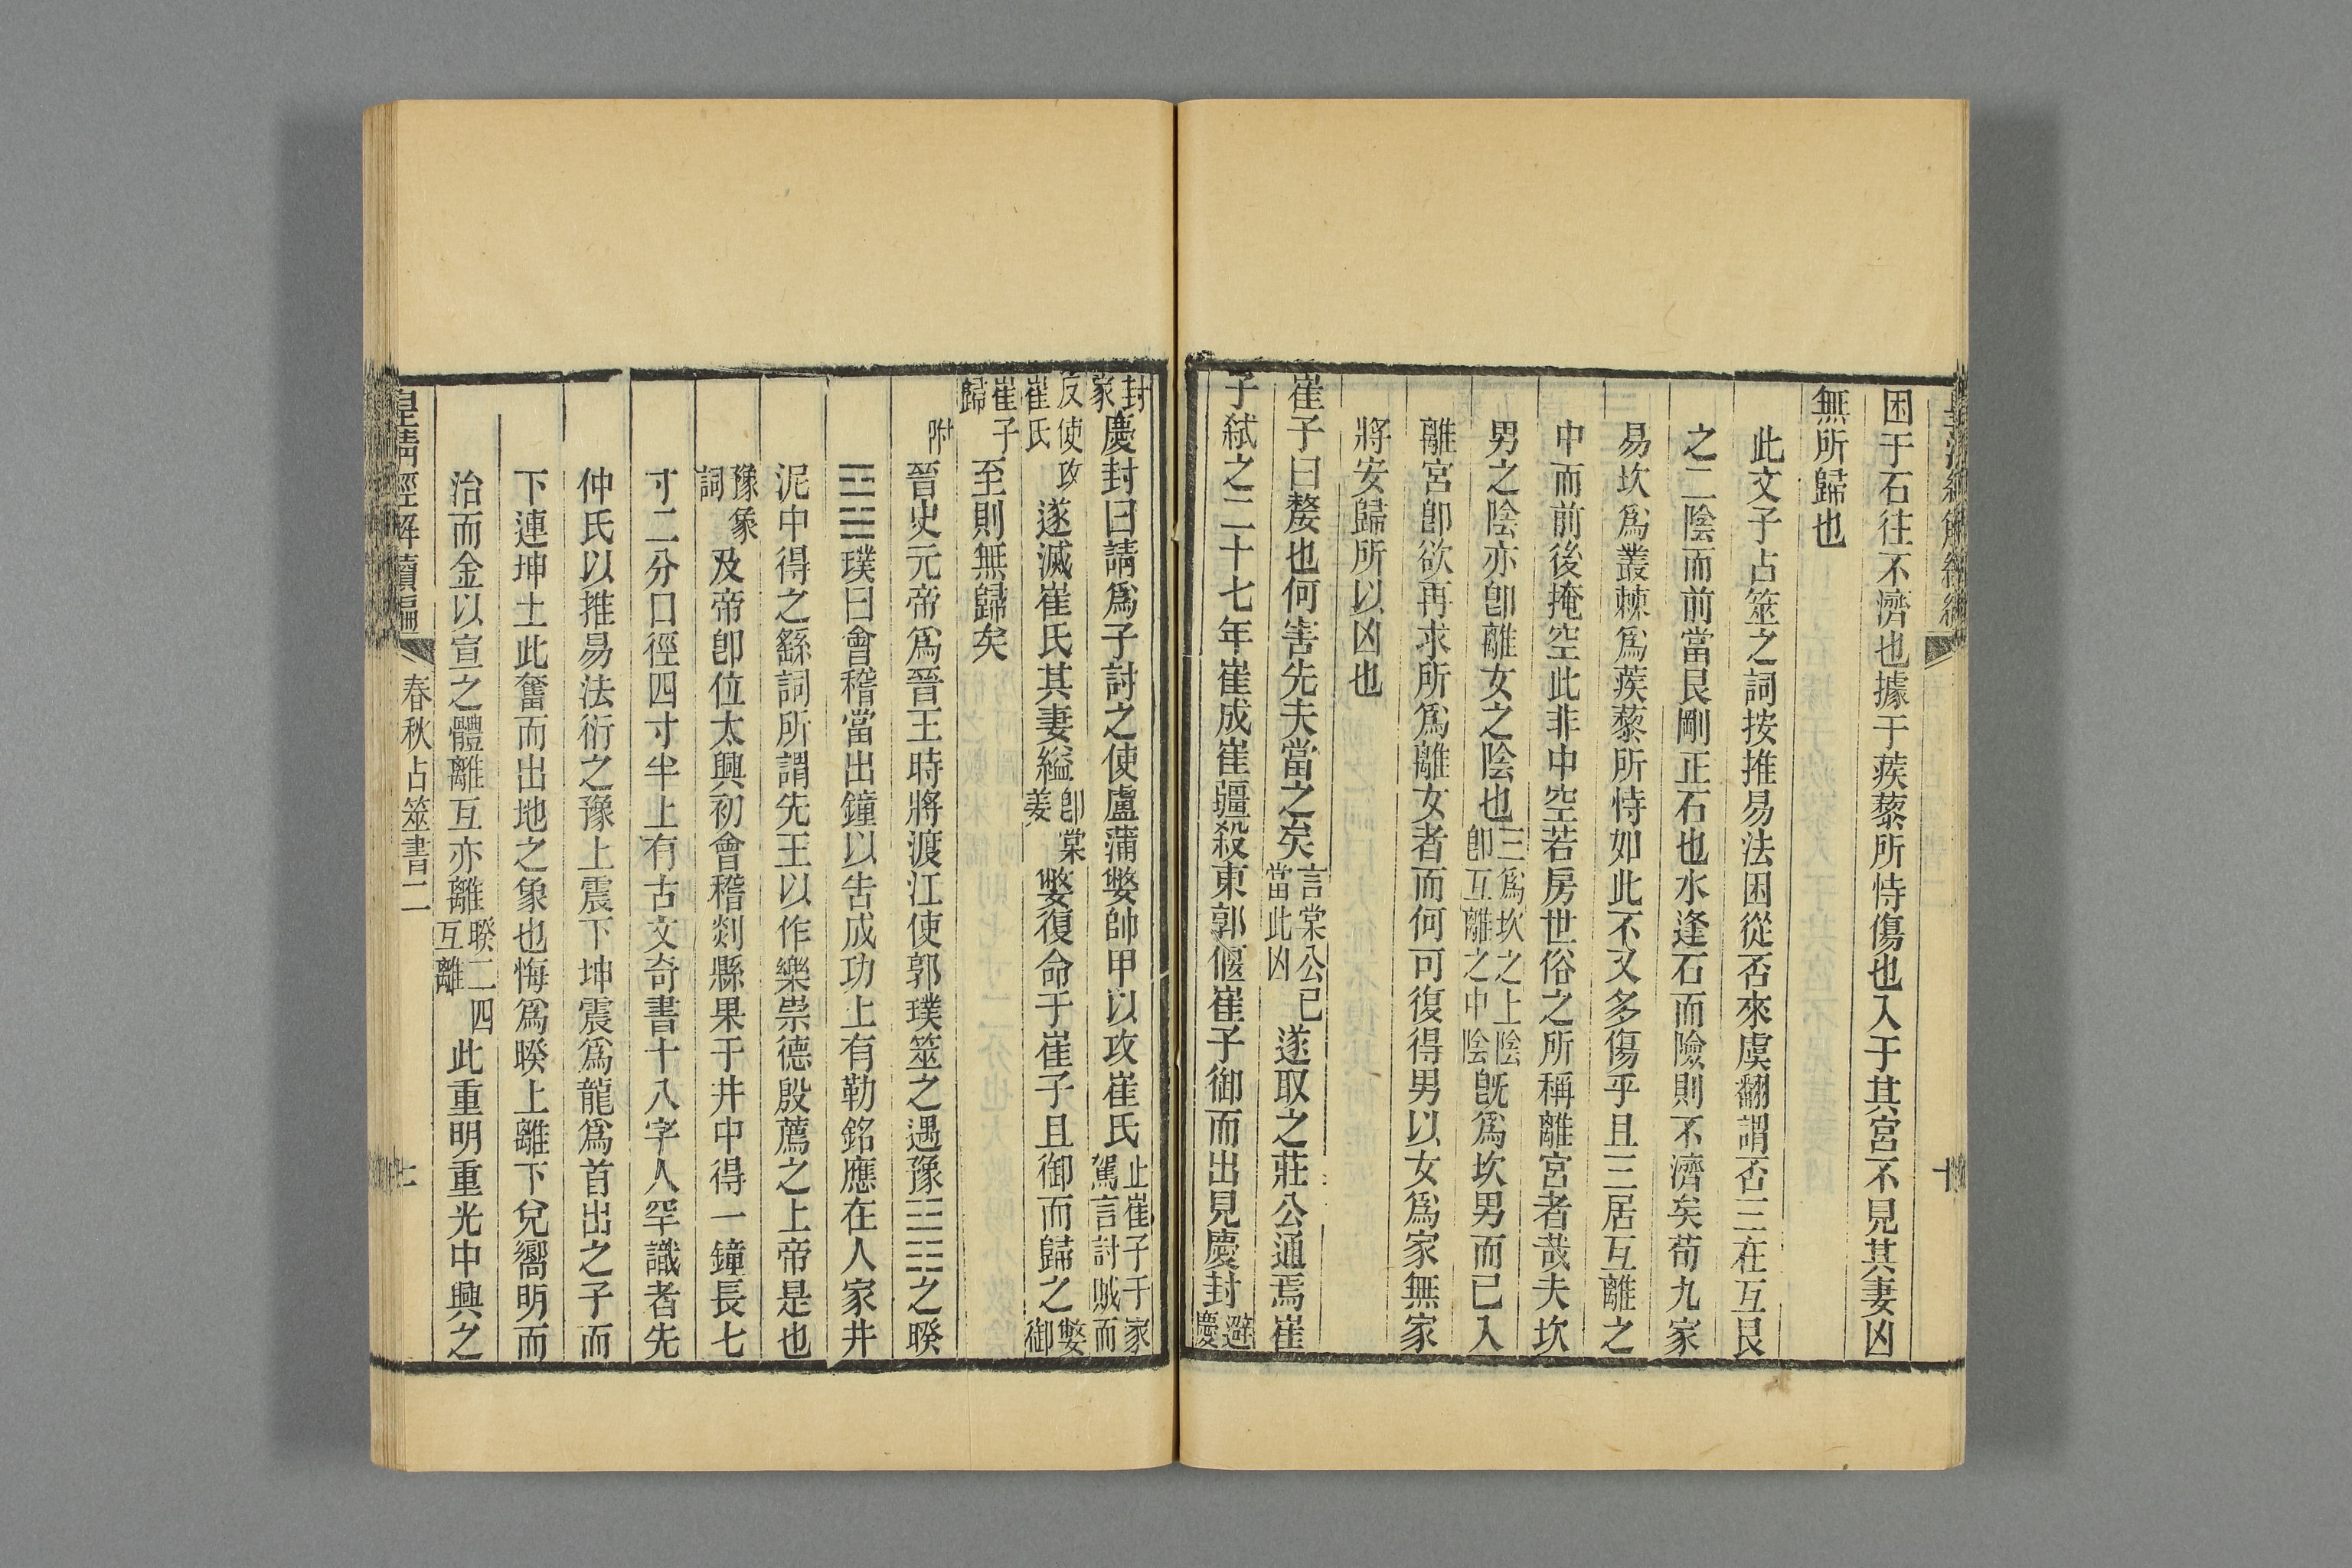 困于石往不濟也據于蒺藜所恃傷也入于其宮不見其妻凶
無所歸也
此文子占筮之詞按推易法困從否來虞翻謂否三在互艮
之二陰而前當艮剛正石也水逢石而險則不濟矣荀九家
易坎爲叢棘爲蒺藜所恃如此不又多傷乎且三居互離之
中而前後掩空此非中空若房世俗之所稱離宮者哉夫坎
男之陰亦卽離女之陰也三爲坎之上陰卽互離之中陰旣爲坎男而已入
離宮卽欲再求所爲離女者而何可復得男以女爲家無家
將安歸所以凶也
崔子曰嫠也何害先夫當之矣言棠公已當此凶遂取之莊公通焉崔
子弑之二十七年崔成崔疆殺東郭偃崔子御而出見慶封避慶
封家慶封曰請爲子討之使盧蒲嫳帥甲以攻崔氏止崔子于家駕言討賊而
反使攻崔氏遂滅崔氏其妻縊卽棠姜嫳復命于崔子且御而歸之嫳御
崔子歸至則無歸矣
附晉史元帝爲晉王時將渡江使郭璞筮之遇豫䷏之睽
䷥璞曰會稽當出鐘以告成功上有勒銘應在人家井
泥中得之繇詞所謂先王以作樂崇德殷薦之上帝是也
豫象詞及帝卽位太興初會稽剡縣果于井中得一鐘長七
寸二分口徑四寸半上有古文奇書十八字人罕識者先
仲氏以推易法衍之豫上震下坤震爲龍爲首出之子而
下連坤土此奮而出地之象也悔爲睽上離下兌嚮明而
治而金以宣之體離互亦離睽二四互離此重明重光中興之
皇清經解續編 春秋占筮書二